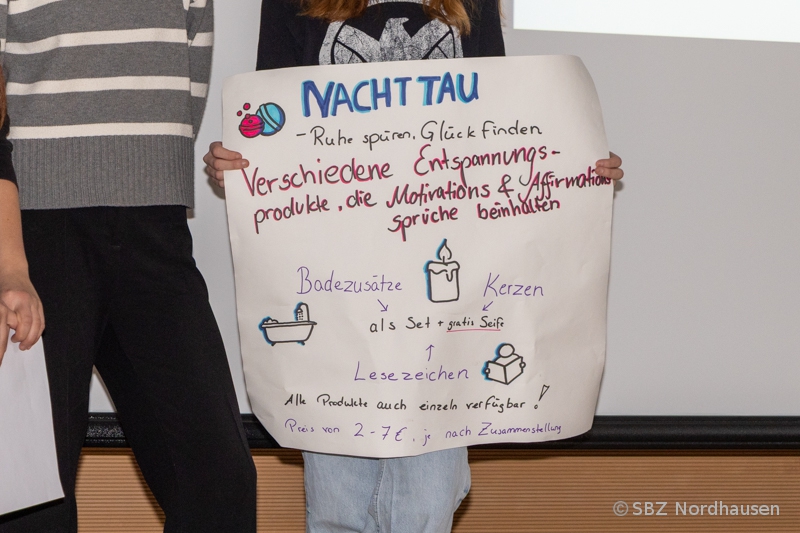 NACHTTAU
- Ruhe spüren, Glück finden
Verschiedene Entspannungs-
produkte, die Motivations & Affirmations
sprüche beinhalten
Badezusätze
Kerzen
als Set + gratis Seife
Lesezeichen
Alle Produkte auch einzeln verfügbar!
Preis von 2-7€, je nach Zusammenstellung
© SBZ Nordhausen